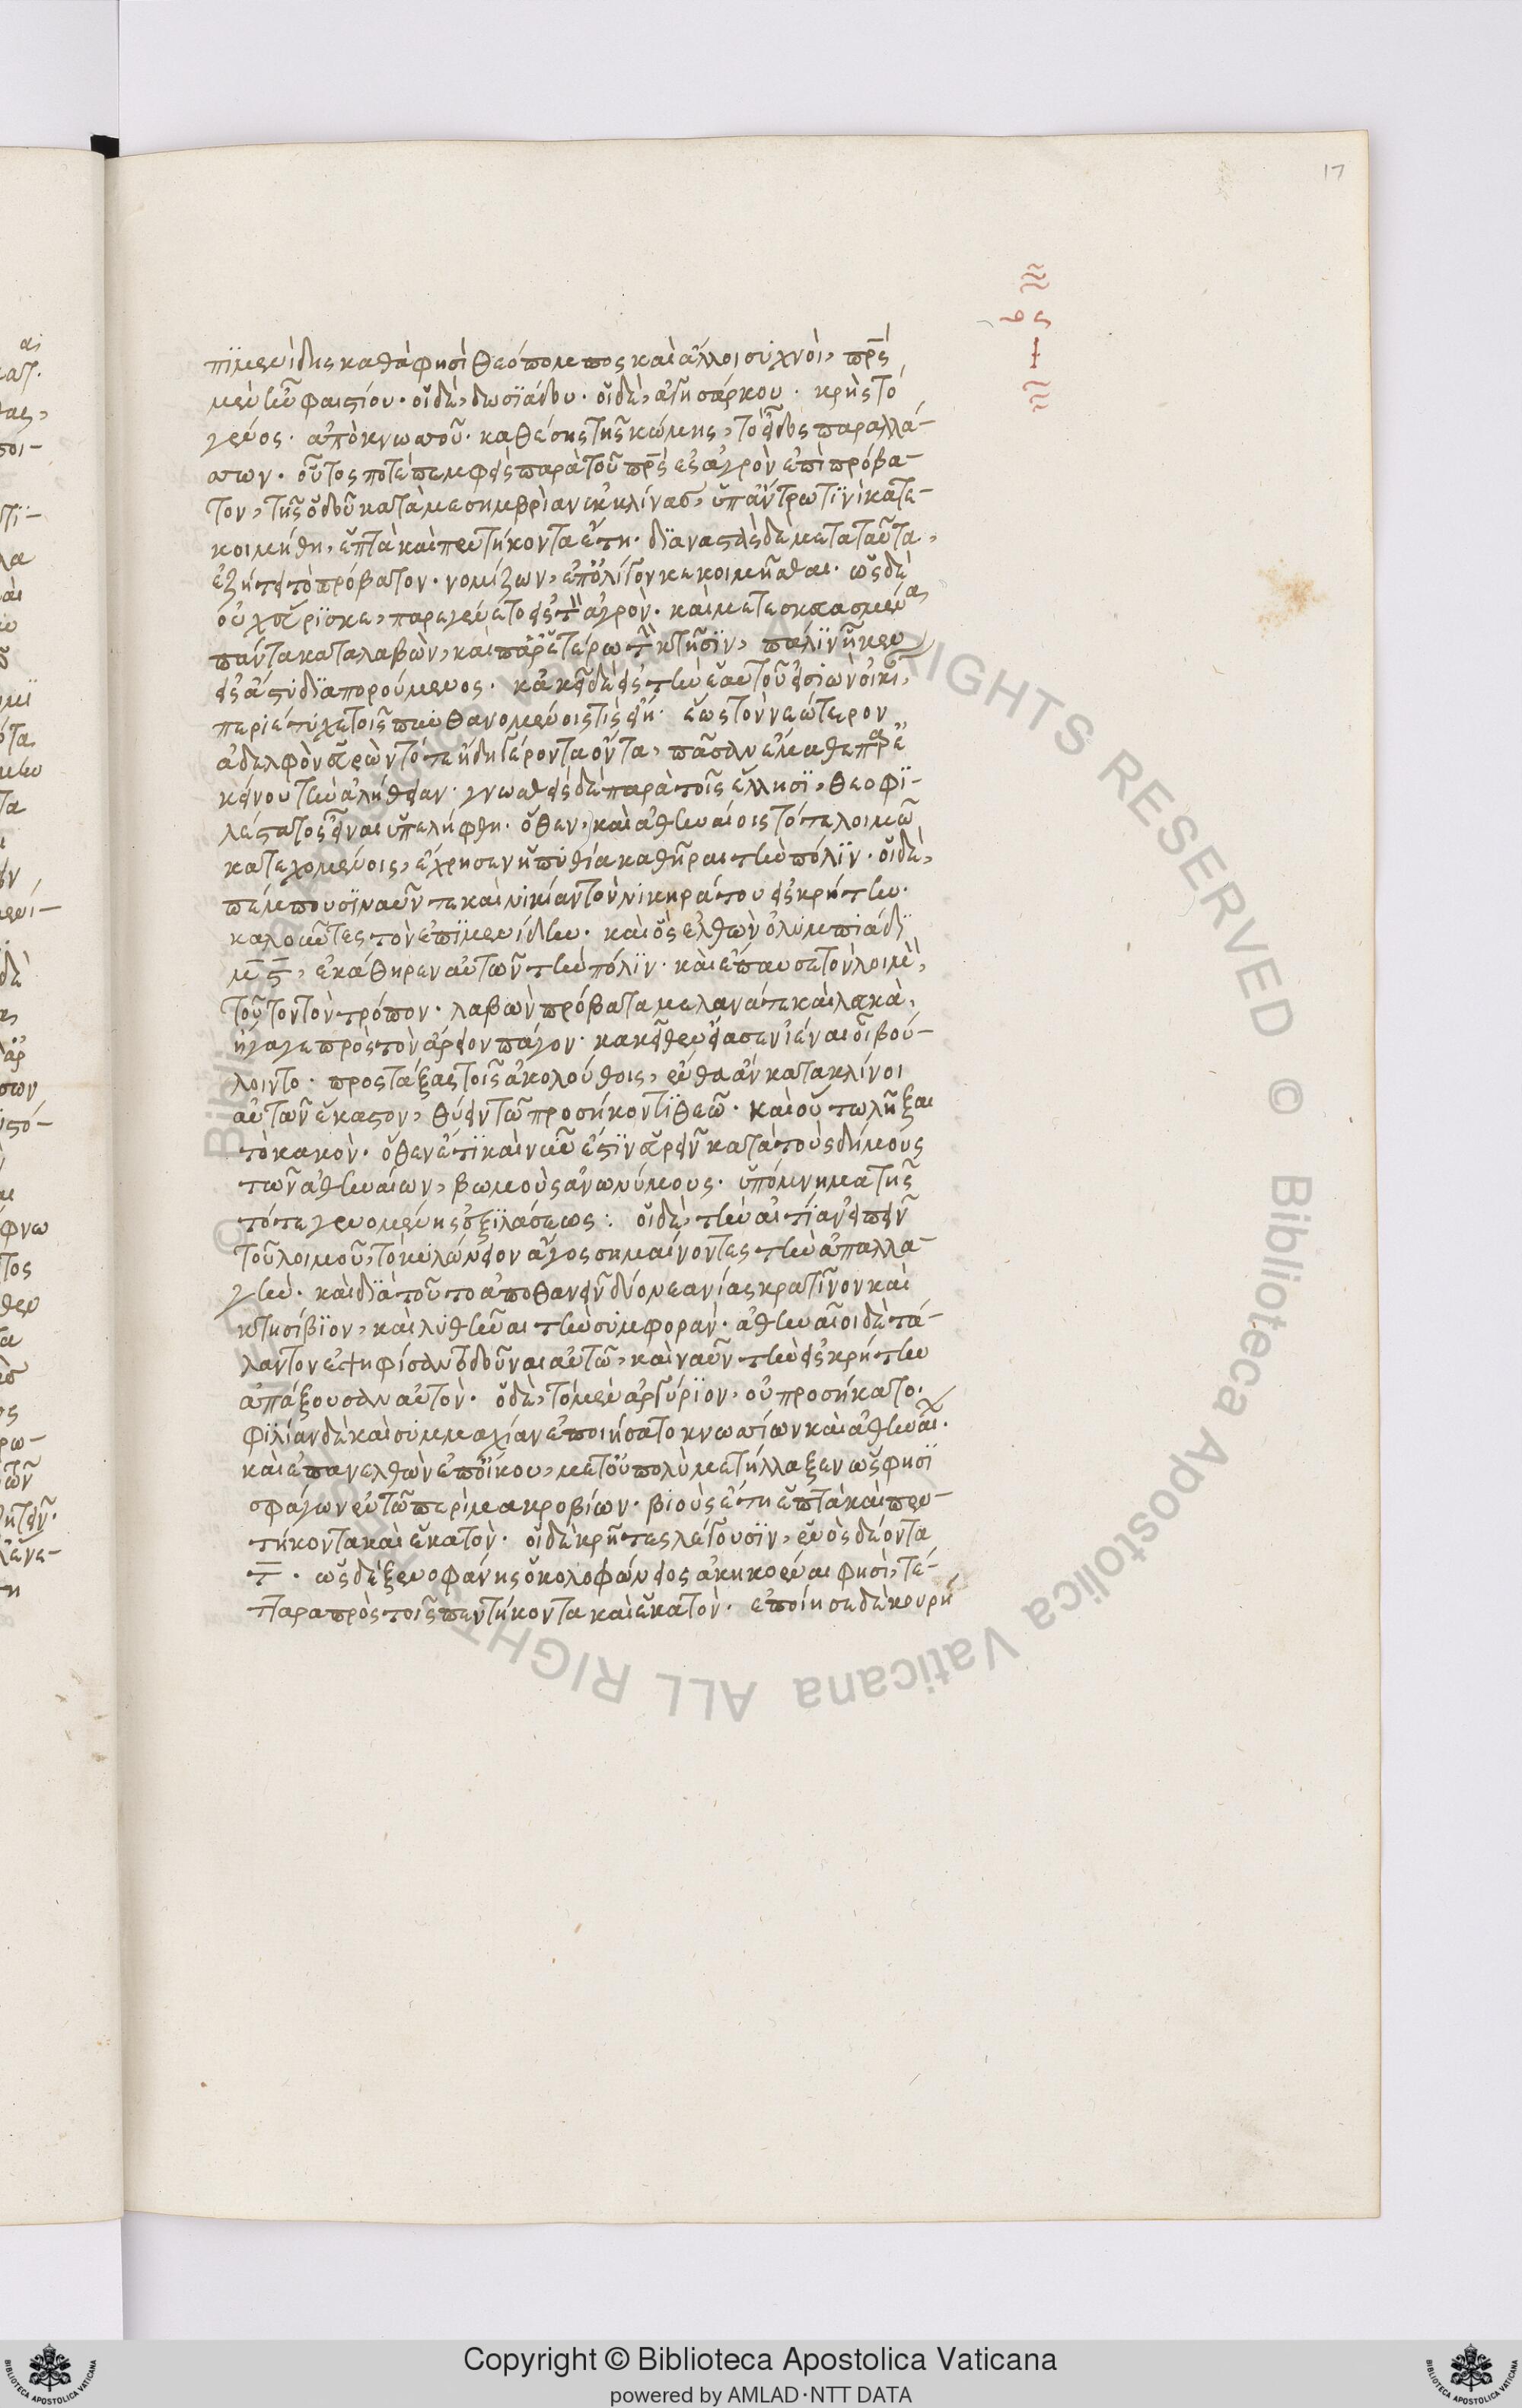 17
πϊμενίδης καθά φησὶ θεόπομπος καὶ ἄλλοι συχνοί, πρς
μὲν ἦν φαιστίου. οἱ δὲ, δωσϊάδου. οἱ δὲ, ἀγησάρκου. κρὴς τὸ
γένος. ἀπὸ κνωσοῦ. καθέσης τῆς κώμης, τὸ εἶδος παραλλά-
σσων. οὗτος ποτὲ πεμφθεὶς παρὰ τοῦ πρς εἰς ἀγρὸν ἐπὶ πρόβα-
τον, τῆς ὁδοῦ κατὰ μεσημβρίαν ἐκκλίνας, ὑπ' ἄντρω τϊνὶ κατε-
κοιμήθη, ἑπτὰ καὶ πεντήκοντα ἔτη. δϊαναστὰς δὲ μετα ταῦτα,
ἐζήτει τὸ πρόβατον. νομίζων, ἐπ' ὀλίγον κεκοιμῆσθαι. ὡς δὲ
οὐχ εὕρϊσκε, παρεγένετο εἰς τ ἀγρὸν. καὶ μετεσκευασμένα
πάντα καταλαβὼν, καὶ παρ' ἑτέρω τ κτῆσϊν, πάλϊν ἧκεν
εἰς ἄστυ δϊαπορούμενος. κἀκεῖ δὲ εἰς τὴν ἑαυτοῦ εἰσιὼν οἰκί,
περιέτυχε τοῖς πυνθανομένοις τίς εἴη. ἕως τὸν νεώτερον
ἀδελφὸν εὑρὼν τότε ἤδη γέροντα ὄντα, πᾶσαν ἔμαθε παρ' ἐ
κείνου τὴν ἀλήθειαν. γνωσθεὶς δὲ παρὰ τοῖς ἕλλησϊ, θεοφϊ-
λέστατος εἶναι ὑπελήφθη. ὅθεν, καὶ ἀθηναίοις τότε λοιμῶ
κατεχομένοις, ἔχρησεν ἡ πυθία καθῆραι τὴν πόλϊν. οἱ δὲ,
πέμπουσϊ ναῦν τε καὶ νικίαν τὸν νικηράτου εἰς κρήτην.
καλοῦντες τὸν ἐπϊμενίδην. καὶ ὃς ἐλθὼν ὀλυμπιάδϊ
μϛ, ἐκάθηρεν αὐτῶν τὴν πόλϊν. καὶ ἔπαυσε τὸν λοιμὸ,
τοῦτον τὸν τρόπον. λαβὼν πρόβατα μέλανά τε καὶ λευκὰ,
ἤγαγε πρὸς τὸν ἄρειον πάγον. κακεῖθεν εἴασεν ἰέναι οἷ βού-
λοιντο. προστάξας τοῖς ἀκολούθοις, ἔνθα ἂν κατακλίνοι
αὐτῶν ἕκαστον, θύειν τῶ προσήκοντϊ θεῶ. καὶ οὕτω λῆξαι
τὸ κακὸν. ὅθεν ἔτϊ καὶ νῦν ἔστϊν εὑρεῖν κατὰ τοὺς δήμους
τῶν ἀθηναίων, βωμοὺς ἀνωνύμους. ὑπόμνημα τῆς
τότε γενομένης ἐξϊλάσεως: οἱ δὲ, τὴν αἰτϊαν εἰπεῖν
τοῦ λοιμοῦ, τὸ κυλώνειον ἄγος σημαίνοντες τὴν ἀπαλλα-
γὴν. καὶ δϊὰ τοῦτο ἀποθανεῖν δύο νεανίας κρατῖνον καὶ
κτησίβϊον, καὶ λυθῆναι τὴν συμφοράν. ἀθηναῖοι δὲ τά-
λαντον ἐψηφίσαντο δοῦναι αὐτῶ, καὶ ναῦν τὴν εἰς κρήτην
ἀπάξουσαν αὐτὸν. ὁ δὲ, τὸ μὲν ἀργύρϊον, οὐ προσήκατο.
φϊλίαν δὲ καὶ συμμαχίαν ἐποιήσατο κνωσίων καὶ ἀθηναί.
καὶ ἐπανελθὼν ἐπ' οἴκου, μετ' οὐ πολὺ μετήλλαξεν ὥς φησϊ
σφλέγων ἐν τῶ περὶ μακροβίων. βιοὺς ἔτη ἑπτὰ καὶ πεν-
τήκοντα καὶ ἑκατὸν. οἱ δὲ κρῆτες λέγουσϊν, ἑνὸς δέοντα
τ. ὡς δὲ ξενοφάνης ὁ κολοφώνειος ἀκηκοέναι φησὶ, τέ-
τταρα πρὸς τοῖς πεντήκοντα καὶ ἑκατὸν. ἐποίησε δὲ κουρή
Copyright © Biblioteca Apostolica Vaticana
powered by AMLAD·NTT DATA